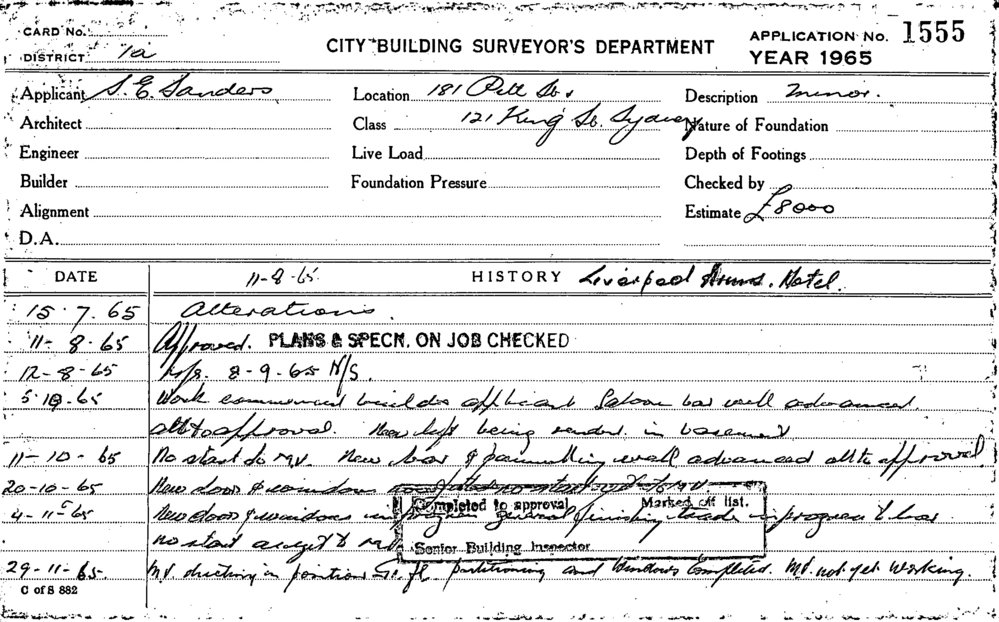 CARD No.
DISTRICT 1a
CITY BUILDING SURVEYOR'S DEPARTMENT
APPLICATION No. 1555
YEAR 1965
Applicant S. E. Sanders
Location 181 Pitt St.
Description Minor.
Architect
Class 121 King St. Sydney
Nature of Foundation
Engineer
Live Load
Depth of Footings
Builder
Foundation Pressure
Checked by
Alignment
Estimate £8000
D.A.
DATE 11-8-65 HISTORY Liverpool Arms Hotel.
15.7.65 Alterations.
11-8-65 Approved. PLANS & SPECN. ON JOB CHECKED
12-8-65 8-9-65 N/S.
Work commenced builder applicant Saloon bar well advanced
approval. New being in basement
11-10-65 No start to M.V. New bar & panelling well advanced approval
20-10-65 New door & windows
4-11-65 New door & windows in progress general finishing trade in progress bar
Completed to approval Marked off list.
no start
Senior Building Inspector
29-11-65. M.V. ducting in position partitioning and windows completed. M.V. not yet working.
C of S 882